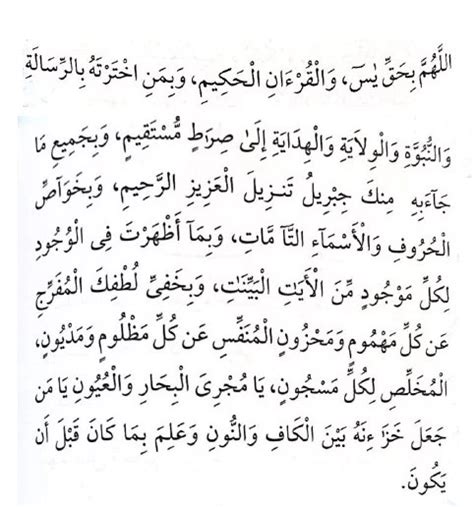 اللَّهُمَّ بِحَقِّ يٰسٓ، وَالْقُرْءَانِ الْحَكِيمِ، وَبِمَنِ اخْتَرْتَهُ بِالرِّسَالَةِ
وَالنُّبُوَّةِ وَالْوِلَايَةِ وَالْهِدَايَةِ إِلَىٰ صِرَاطٍ مُّسْتَقِيمٍ، وَبِجَمِيعِ مَا
جَآءَبِهِ مِنكَ جِبْرِيلُ تَنزِيلَ الْعَزِيزِ الرَّحِيمِ، وَبِخَوَآصِّ
الْحُرُوفِ وَالْأَسْمَآءِ التَّآ مَّاتِ، وَبِمَآ أَظْهَرْتَ فِى الْوُجُودِ
لِكُلِّ مَوْجُودٍ مِّنَ الْأَيَاتِ الْبَيِّنَاتِ، وَبِخَفِىِّ لُطْفِكَ الْمُفَرِّجِ
عَن كُلِّ مَهْمُومٍ وَمَحْزُونٍ الْمُنَفِّسِ عَن كُلِّ مَظْلُومٍ وَمَدْيُونٍ،
الْمُخَلِّصِ لِكُلِّ مَسْجُونٍ، يَا مُجْرِىَ الْبِحَارِ وَالْعُيُونِ يَا مَن
جَعَلَ خَزَآ ئِنَهُ بَيْنَ الْكَافِ وَالنُّونِ وَعَلِمَ بِمَا كَانَ قَبْلَ أَن
يَكُونَ.